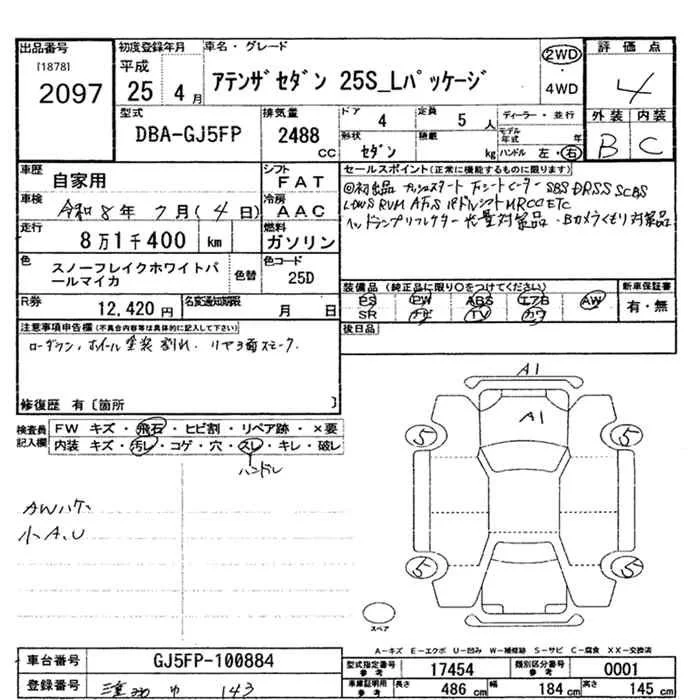 出品番号 初度登録年月 車名・グレード 2WD 評価点
[1878] 平成
2097 25 4月 アテンザセダン 25S_Lパッケージ 4WD 4
型式 排気量 ドア 4 定員 5人 ディーラー・並行 外装 内装
DBA-GJ5FP 2488 CC 形状 セダン 積載 kg モデル年式 年 B C
ハンドル 左・右
車歴 自家用 シフト FAT セールスポイント(正常に機能するものに限ります)
車検 令和8年7月(4日) 冷房 AAC ◎初出品 プッシュスタート シートヒーター SBS DRSS SCBS
LDWS RVM AFLS パドルシフト MRCC ETC
走行 8万1千400 km 燃料 ガソリン ヘッドランプリフレクター 光量対策品・Bカメラくもり対策品
色 スノーフレイクホワイトパールマイカ 色替 色コード 25D
装備品(純正品に限り○をつけてください) 新車保証書
PS PW ABS エアB AW 有・無
SR ナビ TV カワ
R券 12,420円 名変通知期限 月 日
後日品
注意事項申告欄(不具合内容等は具体的に記入して下さい)
ローダウン、ホイール塗装 割れ、リヤ3面スモーク.
修復歴 有〔箇所 〕
検査員記入欄 FW キズ・飛石・ヒビ割・リペア跡・×要
内装 キズ・汚レ・コゲ・穴・スレ・キレ・破レ
ハンドル
AWハケ、
小A.U
A1
A1
5 5
5 5
スペア
A-キズ E-エクボ U-凹み W-補修跡 S-サビ C-腐食 XX-交換済
車台番号 GJ5FP-100884 型式指定番号 参考 17454 類別区分番号 参考 0001
登録番号 三重 143 車庫証明用 参考 長さ 486 cm 幅 184 cm 高さ 145 cm